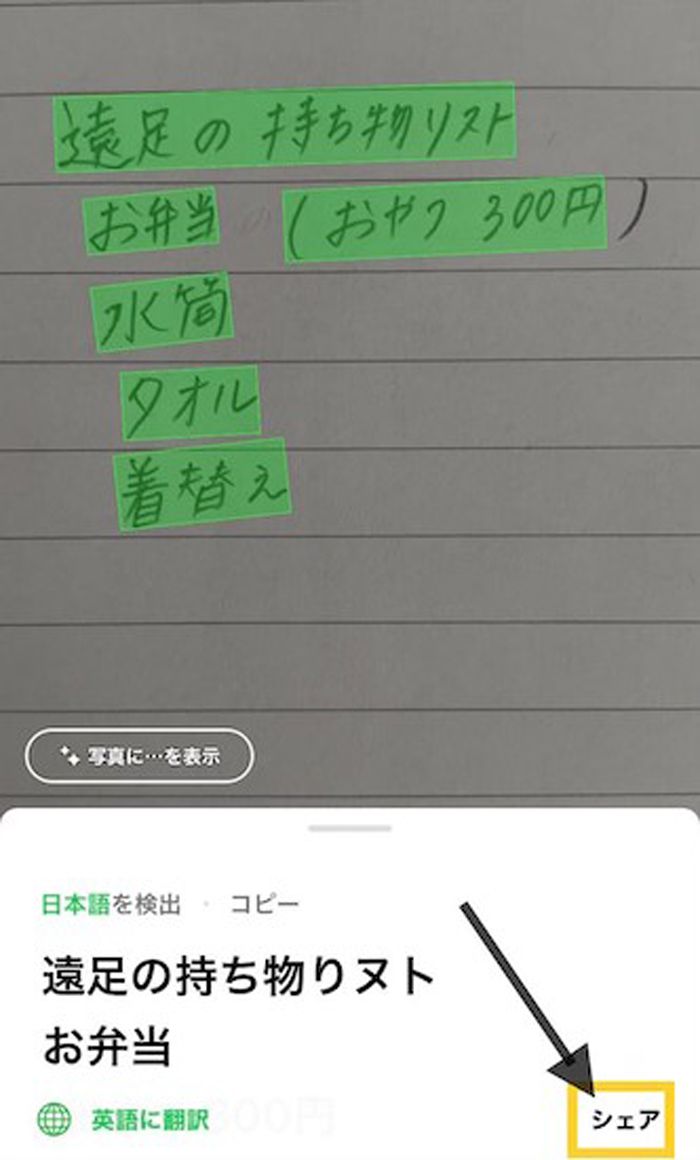 遠足の 持ち物リスト
お弁当 (おやつ 300円)
水筒
タオル
着替え
写真に…を表示
日本語を検出 · コピー
遠足の持ち物りヌト
お弁当
300円
英語に翻訳 シェア